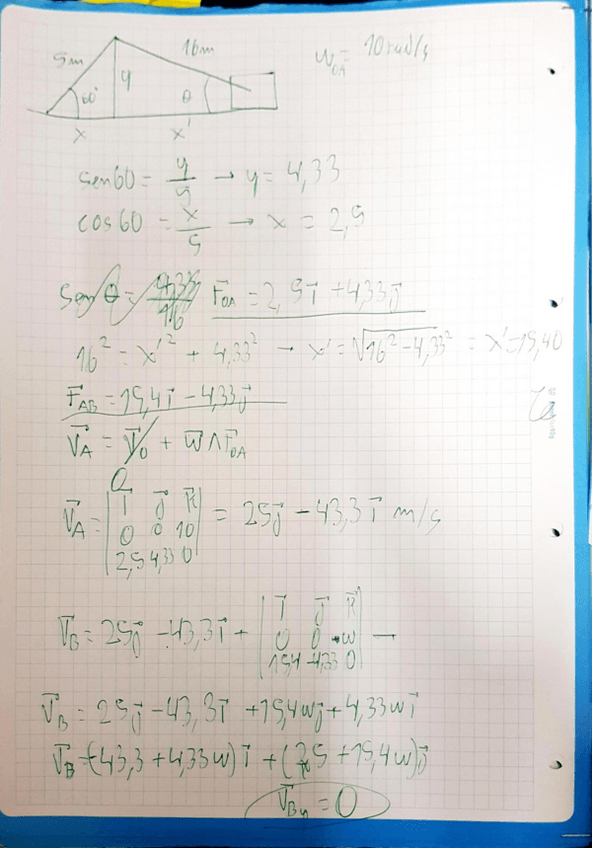 5m 16m W_OA = 10 rad/s
y
60° θ
x x'
sen60 = y/5 → y = 4,33
cos60 = x/5 → x = 2,5
Sen θ = 4,33/16 r⃗_OA = 2,5i⃗ + 4,33j⃗
16² = x'² + 4,33² → x' = √(16² - 4,33²) = x' = 15,40
r⃗_AB = 15,4i⃗ - 4,33j⃗
V⃗_A = V⃗_0 + W̄ ∧ r⃗_OA
0
V⃗_A = | i⃗ j⃗ k⃗ | = 25j⃗ - 43,3i⃗ m/s
0 0 10
2,5 4,33 0
V⃗_B = 25j⃗ - 43,3i⃗ + | i⃗ j⃗ k⃗ | →
0 0 w
15,4 -4,33 0
V⃗_B = 25j⃗ - 43,3i⃗ + 15,4wj⃗ + 4,33wi⃗
V⃗_B = (-43,3 + 4,33w)i⃗ + (25 + 15,4w)j⃗
V⃗_By = 0